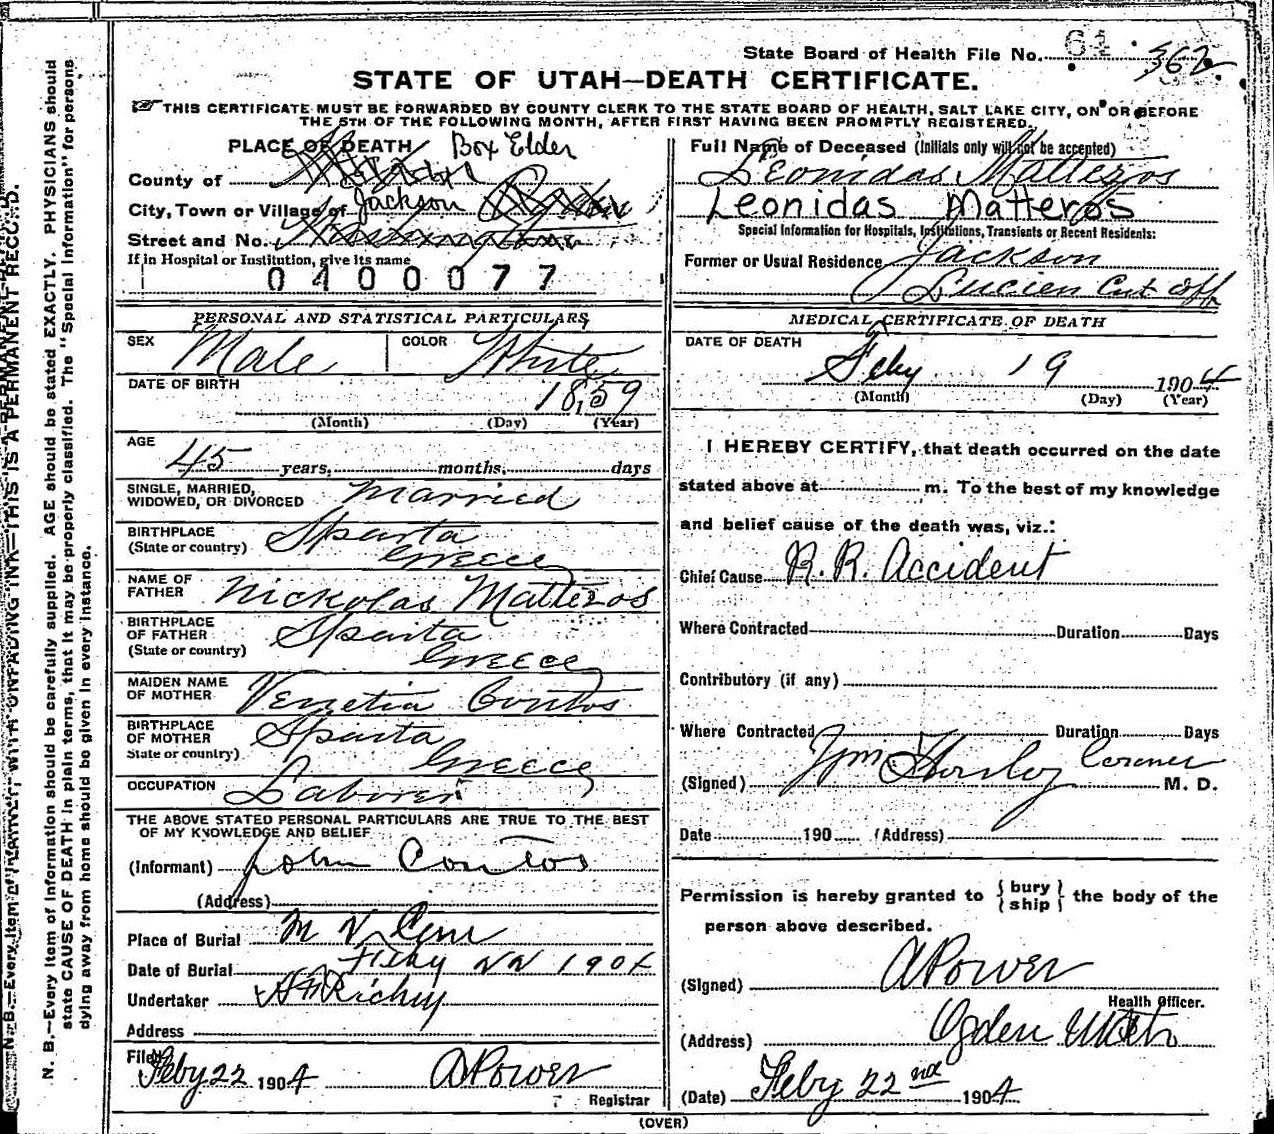 State Board of Health File No. 61 362
STATE OF UTAH—DEATH CERTIFICATE.
THIS CERTIFICATE MUST BE FORWARDED BY COUNTY CLERK TO THE STATE BOARD OF HEALTH, SALT LAKE CITY, ON OR BEFORE
THE 5TH OF THE FOLLOWING MONTH, AFTER FIRST HAVING BEEN PROMPTLY REGISTERED.
PLACE OF DEATH Box Elder
County of
City, Town or Village of Jackson
Street and No.
If in Hospital or Institution, give its name
0400077
PERSONAL AND STATISTICAL PARTICULARS
SEX Male COLOR White
DATE OF BIRTH 1859
(Month) (Day) (Year)
AGE 45 years, months, days
SINGLE, MARRIED,
WIDOWED, OR DIVORCED Married
BIRTHPLACE Sparta
(State or country) Greece
NAME OF
FATHER Nickolas Matteros
BIRTHPLACE
OF FATHER Sparta
(State or country) Greece
MAIDEN NAME
OF MOTHER Venetia Contos
BIRTHPLACE
OF MOTHER Sparta
State or country) Greece
OCCUPATION Laborer
THE ABOVE STATED PERSONAL PARTICULARS ARE TRUE TO THE BEST
OF MY KNOWLEDGE AND BELIEF
(Informant) John Contos
(Address)
Place of Burial Mt V Cem
Date of Burial Feby 22 1904
Undertaker Richey
Address
Filed Feby 22 1904 A Power
Registrar
Full Name of Deceased (Initials only will not be accepted)
Leonidas Matteros
Leonidas Matteros
Special Information for Hospitals, Institutions, Transients or Recent Residents:
Former or Usual Residence Jackson
Lucien Cut off
MEDICAL CERTIFICATE OF DEATH
DATE OF DEATH
Feby 19 1904
(Month) (Day) (Year)
I HEREBY CERTIFY, that death occurred on the date
stated above at m. To the best of my knowledge
and belief cause of the death was, viz.:
Chief Cause R.R. Accident
Where Contracted Duration Days
Contributory (if any)
Where Contracted Duration Days
(Signed) Coroner M. D.
Date 190 (Address)
Permission is hereby granted to { bury
ship } the body of the
person above described.
(Signed) A Power
Health Officer.
(Address) Ogden Utah
(Date) Feby 22nd 1904
(OVER)
N. B.—Every item of information should be carefully supplied. AGE should be stated EXACTLY. PHYSICIANS should
state CAUSE OF DEATH in plain terms, that it may be properly classified. The "Special Information" for persons
dying away from home should be given in every instance.
THIS IS A PERMANENT RECORD.